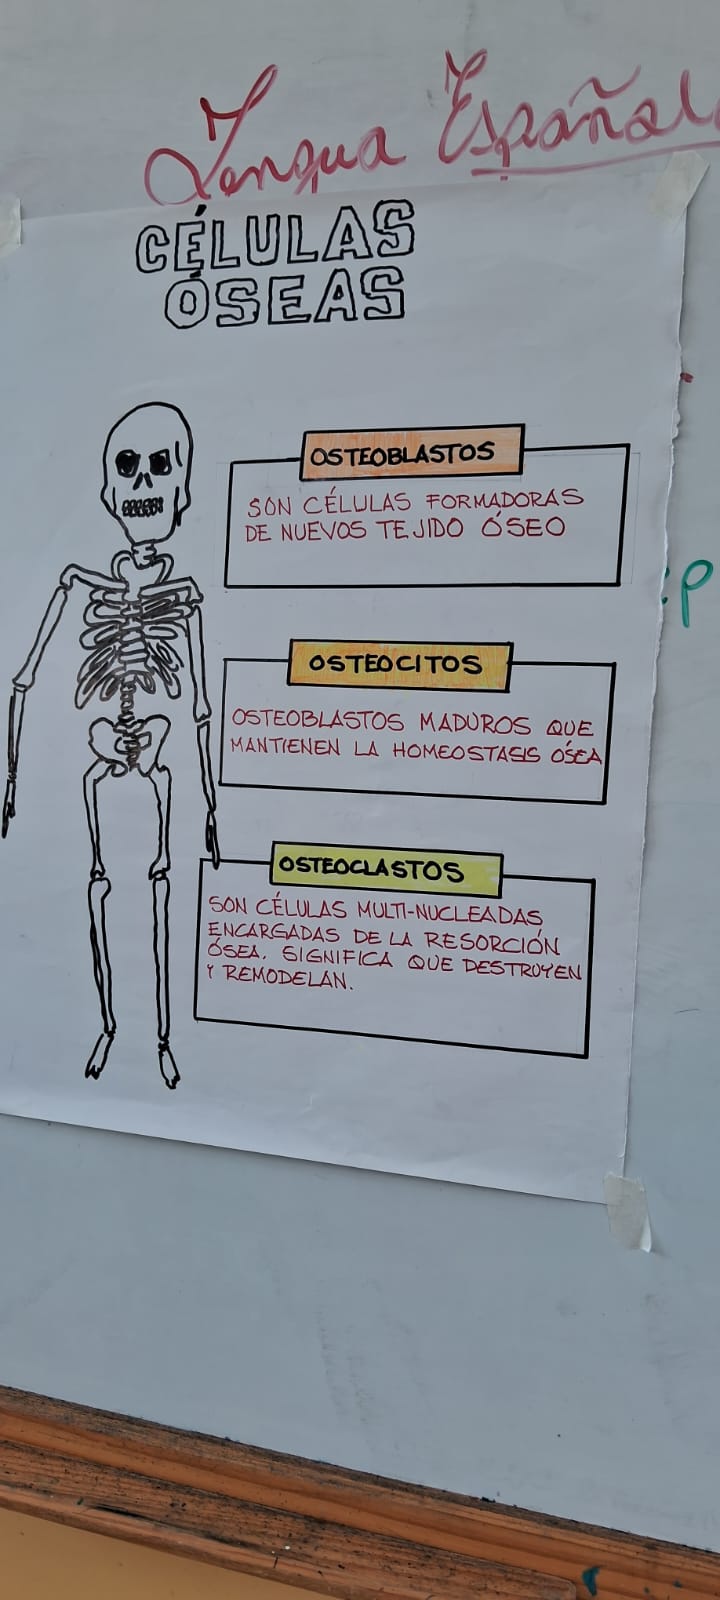 Lengua Española
CÉLULAS
ÓSEAS
OSTEOBLASTOS
SON CÉLULAS FORMADORAS
DE NUEVOS TEJIDO ÓSEO
OSTEOCITOS
OSTEOBLASTOS MADUROS QUE
MANTIENEN LA HOMEOSTASIS ÓSEA
OSTEOCLASTOS
SON CÉLULAS MULTI-NUCLEADAS
ENCARGADAS DE LA RESORCIÓN
ÓSEA. SIGNIFICA QUE DESTRUYEN
Y REMODELAN.